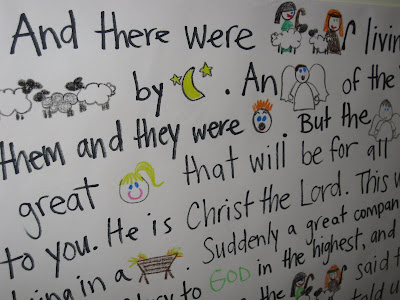 And there were livin
by . An of the
them and they were . But the
great that will be for all
to you. He is Christ the Lord. This w
in a . Suddenly a great compan
to GOD in the highest, and
said t
told u